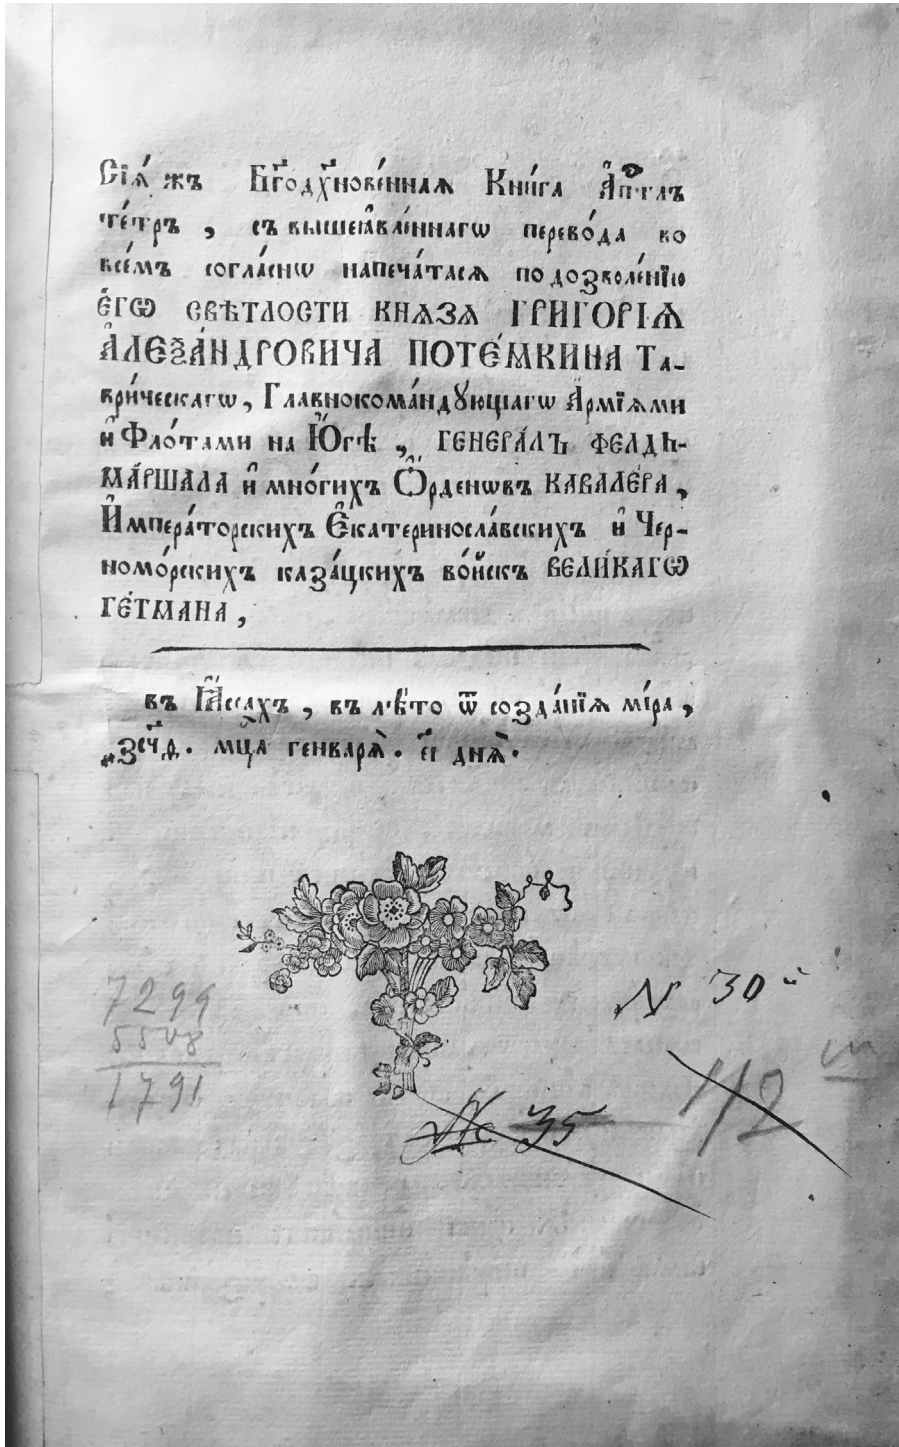 Сїѧ́ жъ Бг҃одх҃нове́ннаѧ Кни́га А҆пⷭ҇тлъ
те́тръ , съ вышеꙗ҆вле́ннагѡ перево́да во
все́мъ согла́снѡ напеча́тасѧ по дозволе́нїю
є҆гѡ̀ СВѢТЛОСТИ КНѦЗѦ ГРИГОРІѦ
А҆ЛЕѮА́НДРОВИЧА ПОТЕ́МКИНА Та-
ври́ческагѡ , Главнокома́ндꙋющагѡ А҆рмїѧми
и҆ Фло́тами на Ю҆́гѣ , ГЕНЕРА́ЛЪ ФЕЛДЬ-
МА́РШАЛА и҆ мно́гихъ Ѻ҆́рденѡвъ КАВАЛЕ́РА ,
И҆мпера́торскихъ Є҆катериносла́вскихъ и҆ Чер-
номо́рскихъ каза́цкихъ во́йскъ ВЕЛИ́КАГѠ
ГЕ́ТМАНА ,
въ Ꙗ҆́ссахъ , въ лѣ́то ѿ созда́нїѧ мі́ра ,
҂зсч҃ѳ . мц҃а генварѧ̀ . є҃і днѧ̀ .
7299
5508
1791
N 30й
112
№ 35